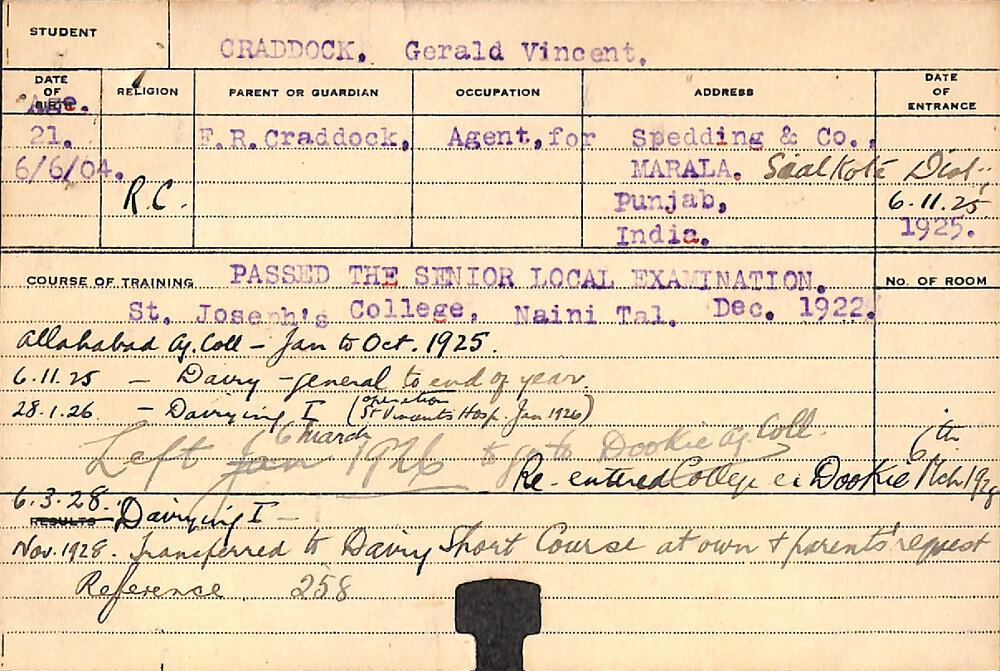 STUDENT
CRADDOCK, Gerald Vincent.
DATE OF BIRTH
RELIGION
PARENT OR GUARDIAN
OCCUPATION
ADDRESS
DATE OF ENTRANCE
Age.
21. F.R.Craddock, Agent,for Spedding & Co.,
6/6/04. MARALA. Sialkote Dist.,
R.C. Punjab, 6.11.25
India. 1925.
COURSE OF TRAINING PASSED THE SENIOR LOCAL EXAMINATION. NO. OF ROOM
St. Joseph's College, Naini Tal. Dec. 1922.
Allahabad Ag. Coll - Jan to Oct. 1925.
6.11.25 - Dairy - general to end of year.
28.1.26. - Dairying I (operation St Vincents Hosp. Jan 1926)
Left Jan 6 March 1926 to go to Dookie Ag. Coll.
Re-entered College Dookie 6th Mch 1928
6.3.28. Dairying I -
RESULTS
Nov. 1928. Transferred to Dairy Short Course at own & parents' request
Reference 258